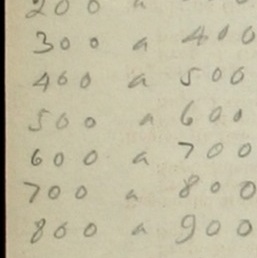 200 a
300 a 400
400 a 500
500 a 600
600 a 700
700 a 800
800 a 900